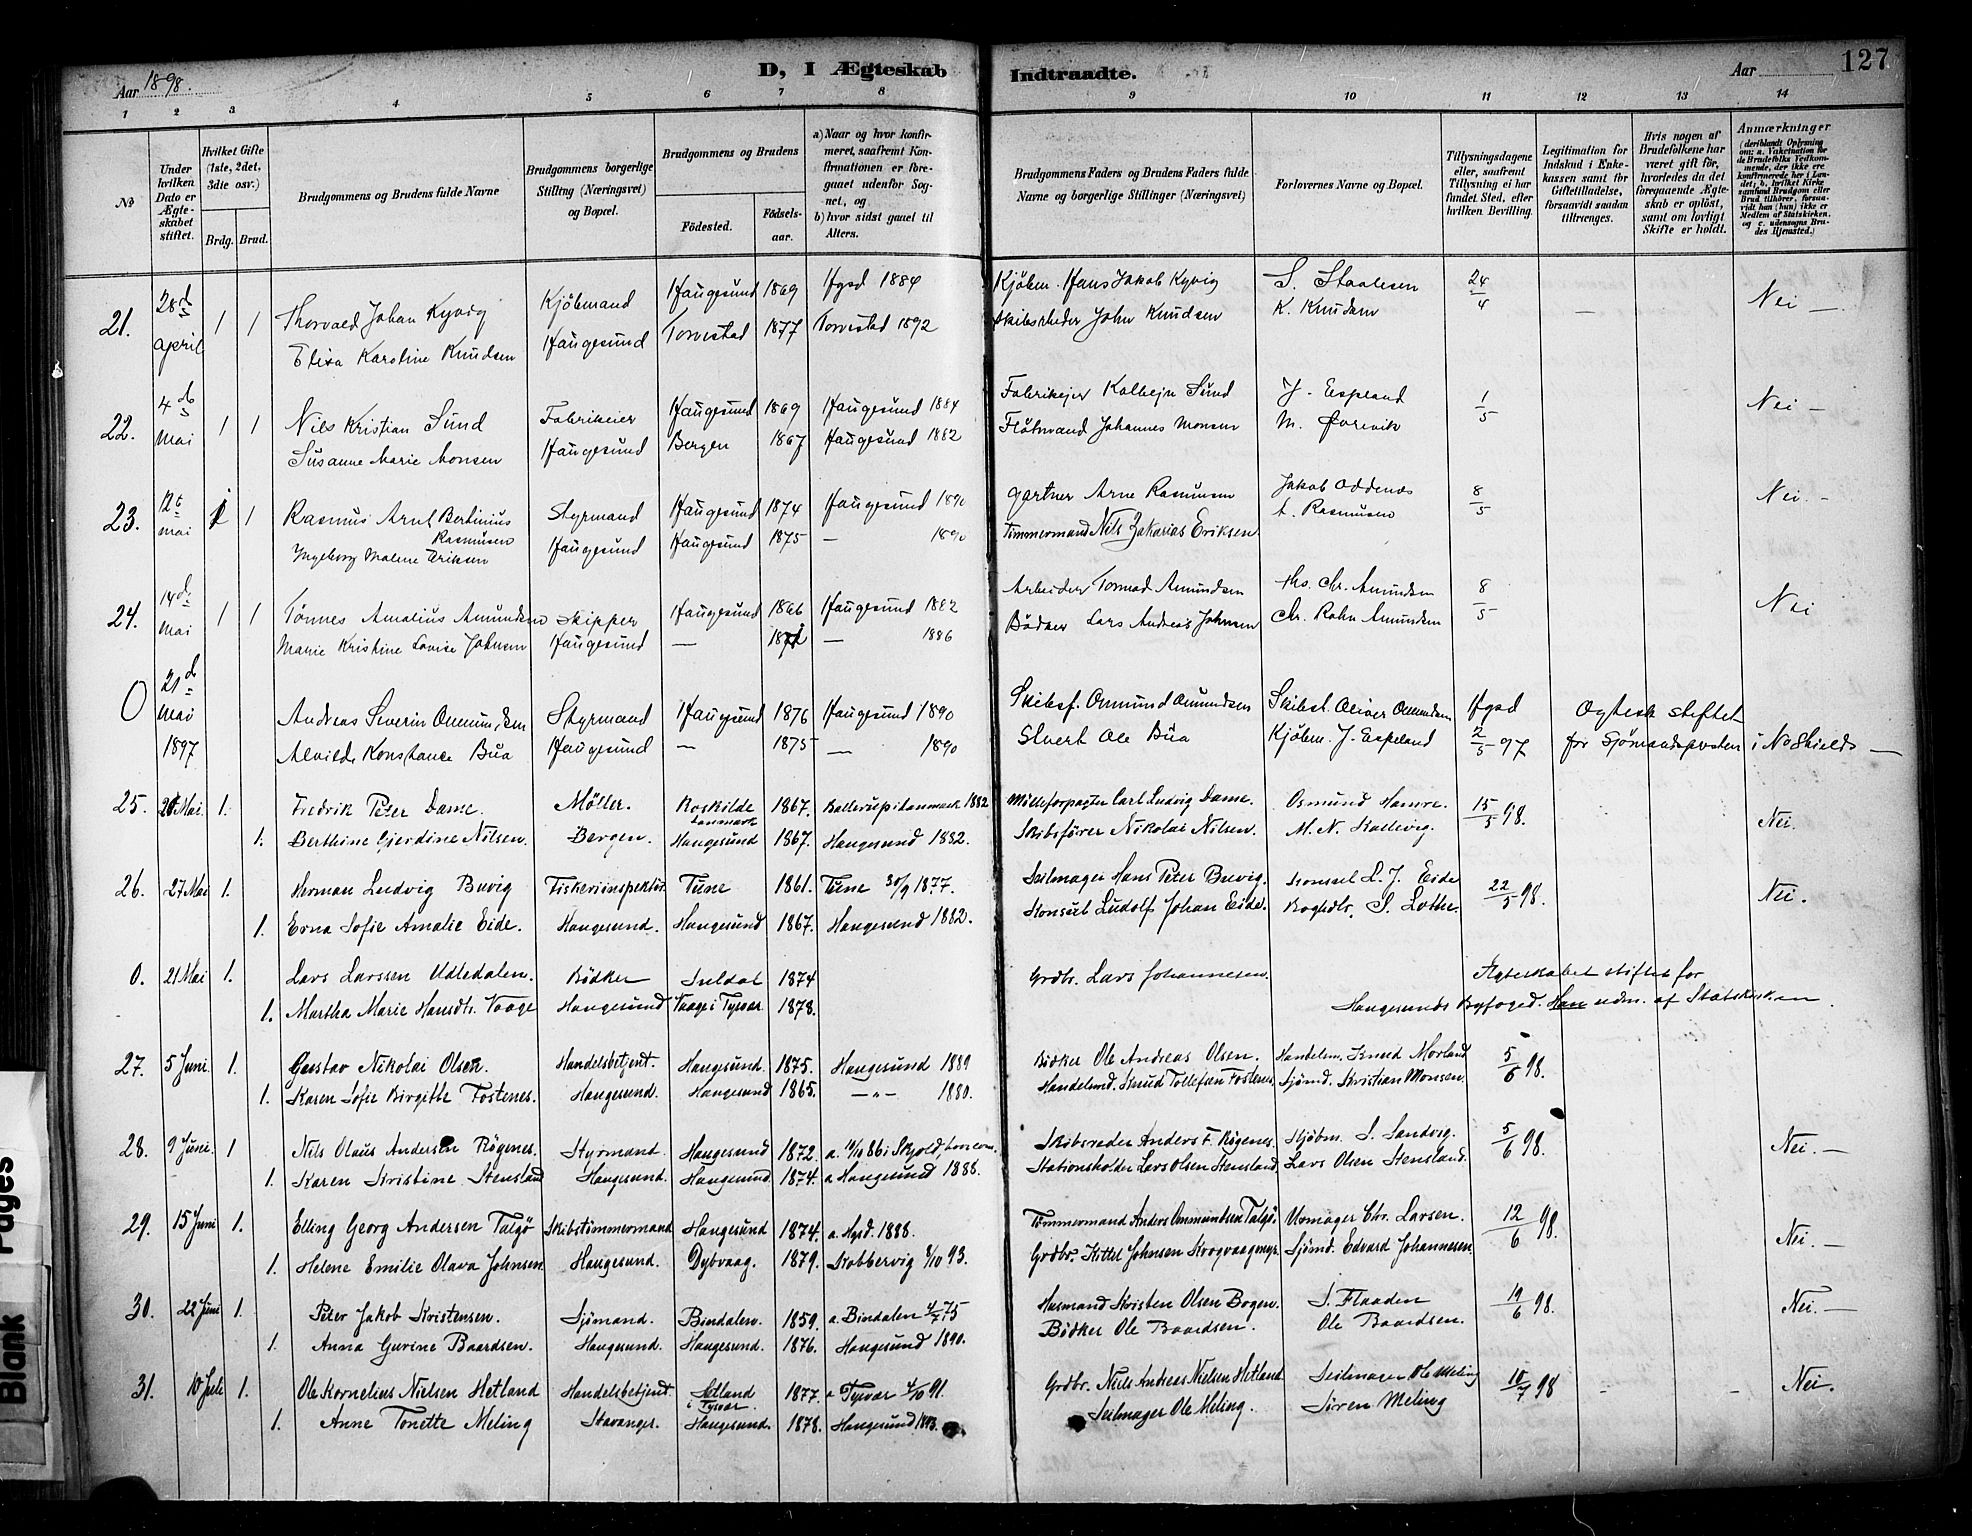 Aar 1898.
D, I Ægteskab Indtraadte.
Aar 127
1 2 3 4 5 6 7 8 9 10 11 12 13 14
No
Under hvilken Dato er Ægteskabet stiftet.
Hvilket Gifte (1ste, 2det, 3die osv.)
Brdg. Brud.
Brudgommens og Brudens fulde Navne
Brudgommens borgerlige Stilling (Næringsvei) og Bopæl.
Brudgommens og Brudens
Fødested. Fødselsaar.
a) Naar og hvor konfirmeret, saafremt Konfirmationen er foregaaet udenfor Sognet, og
b) hvor sidst gaaet til Alters.
Brudgommens Faders og Brudens Faders fulde Navne og borgerlige Stillinger (Næringsvei)
Forlovernes Navne og Bopæl.
Tillysningsdagene eller, saafremt Tillysning ei har fundet Sted, efter hvilken Bevilling.
Legitimation for Indskud i Enkekassen samt for Giftetilladelse, forsaavidt saadan tiltrænges.
Hvis nogen af Brudefolkene har været gift før, hvorledes da det foregaaende Ægteskab er opløst, samt om lovligt Skifte er holdt.
Anmærkninger (deriblandt Oplysning om: a. Vakcination for de Brudefolks Vedkommende, der ikke ere konfirmerede her i Landet; b. hvilket Kirkesamfund Brudgom eller Brud tilhører, forsaavidt han (hun) ikke er Medlem af Statskirken, og c. udensogns Brudes Hjemsted.)
21. 28d april 1 1 Thorvald Johan Kyvig Kjöbmand Haugesund 1869 Hgsd 1884 Kjöbm. Hans Jakob Kyvig S. Staalesen 24/4 — Nei —
Elisa Karoline Knudsen Haugesund Torvestad 1877 Torvestad 1892 Skibsrheder John Knudsen K. Knudsen
22. 4de mai 1 1 Nils Kristian Sund Fabrikeier Haugesund 1869 Haugesund 1884 Fabrikejer Kolbejn Sund J. Espeland 1/5 Nei —
Susanne Marie Monsen Haugesund Bergen 1867 Haugesund 1882 Flötmand Johannes Monsen M. Förevik
23. 12te mai 1 1 Rasmus Arnt Bertinius Rasmusen Styrmand Haugesund 1874 Haugesund 1890 gartner Arne Rasmusen Jakob Oddenes 8/5 Nei. —
Ingeborg Malene Eriksen Haugesund Haugesund 1875 — 1890 Timmermand Nils Zakarias Eriksen A. Rasmusen
24. 14de mai 1 1 Tönnes Amalius Amundsen Skipper Haugesund 1866 Haugesund 1882 Arbeider Tormod Amundsen Ths. Chr. Amundsen 8/5 Nei
Marie Kristine Lovise Johnsen Haugesund — 187 — 1886 Bödker Lars Andreas Johnsen Chr. Rohn Amundsen
0 21de mai 1897 Andreas Severin Omundsen Styrmand Haugesund 1876 Haugesund 1890 Skibsf. Omund Omundsen Skibst. Oliver Omundsen Hgsd Ægtesk stiftet
Alvilde Konstance Bua Haugesund — 1875 — 1890 Sivert Ole Bua Kjöbm. J. Espeland 2/5 97 for Sjömandspresten i No Shields —
25. 20 Mai. 1. Fredrik Peter Dame. Möller. Roskilde Danmark 1867. Ballerup i Danmark 1882 Mölleforpagter Carl Ludvig Dame. Osmund Hamre. 15/5 98. Nei.
1. Berthine Gjerdine Nilsen. Bergen. Haugesund 1867. Haugesund 1882. Skibsförer Nikolai Nilsen. M. N. Kallevig.
26. 27 Mai 1. Herman Ludvig Buvig Fiskeriinspektör. Tune 1861. Tune 30/9 1877. Seilmager Hans Peter Buvig. Konsul L. J. Eide 22/5 98. Nei.
1. Erna Sofie Amalie Eide. Haugesund. Haugesund 1867. Haugesund 1882. Konsul Ludolf Johan Eide. Boghdlr. S. Lothe.
0. 21 Mai 1. Lars Larssen Udledalen. Bödker Suldal 1874 Grdbr. Lars Johannesen. Ægteskabet stiftet for
1. Martha Marie Hansdtr. Vaage Haugesund Vaage i Tysvær 1878. Haugesunds Byfoged. Han udm. af Statskirken.
27. 5 Juni. 1. Gustav Nikolai Olsen. Handelsbetjent. Haugesund. 1875. Haugesund 1889 Bödker Ole Andreas Olsen. Handelsm. Knud Morland 5/6 98.
1. Karen Sofie Birgitte Fostenes. Haugesund. Haugesund 1865. —"— 1880. Handelsmd. Knud Tollefsen Fostenes. Sjömd. Kristian Monsen.
28. 9 Juni. 1 Nils Olaus Andersen Rögenes. Styrmand. Haugesund 1872. a. 10/10 86 i Skjold Skibsreder Anders F. Rögenes. Kjöbm. S. Sandvig. 5/6 98. Nei. —
1. Karen Kristine Stensland Haugesund. Haugesund. 1874. a Haugesund 1888. Stationsholder Lars Olsen Stensland. Lars Olsen Stensland.
29. 15 Juni 1. Elling Georg Andersen Talgö Skibstömmermand Haugesund 1874. a. Hgsd. 1888. Tömmermand Anders Ommundsen Talgö. Urmager Chr. Larsen. 12/6 98. Nei. —
1. Helene Emilie Olava Johnsen Haugesund. Dybvaag. 1879. Kobbervig 8/10 93. Grdbr. Kittel Johnsen Krogvaagmyr. Sjömd. Edvard Johannesen
30. 22 Juni 1. Peter Jakob Kristensen. Sjömand. Bindalen. 1859. a. Bindalen 4/7 75 Husmand Kristen Olsen Bogen. S. Flaaden 19/6 98. Nei. —
1. Anna Gurine Baardsen. Haugesund. Haugesund. 1876. Haugesund 1890. Bödker Ole Baardsen. Ole Baardsen.
31. 10 Juli 1. Ole Kornelius Nielsen Hetland Handelsbetjent. Hetland i Tysvær. 1877. a Tysvær 4/10 91. Grdbr. Niels Andreas Nielsen Hetland Seilmager Ole Meling 10/7 98 - - Nei.
1. Anne Tonette Meling Stavanger. Haugesund. 1878. Haugesund 1893. Seilmager Ole Meling. Sören Meling
Blank Pages